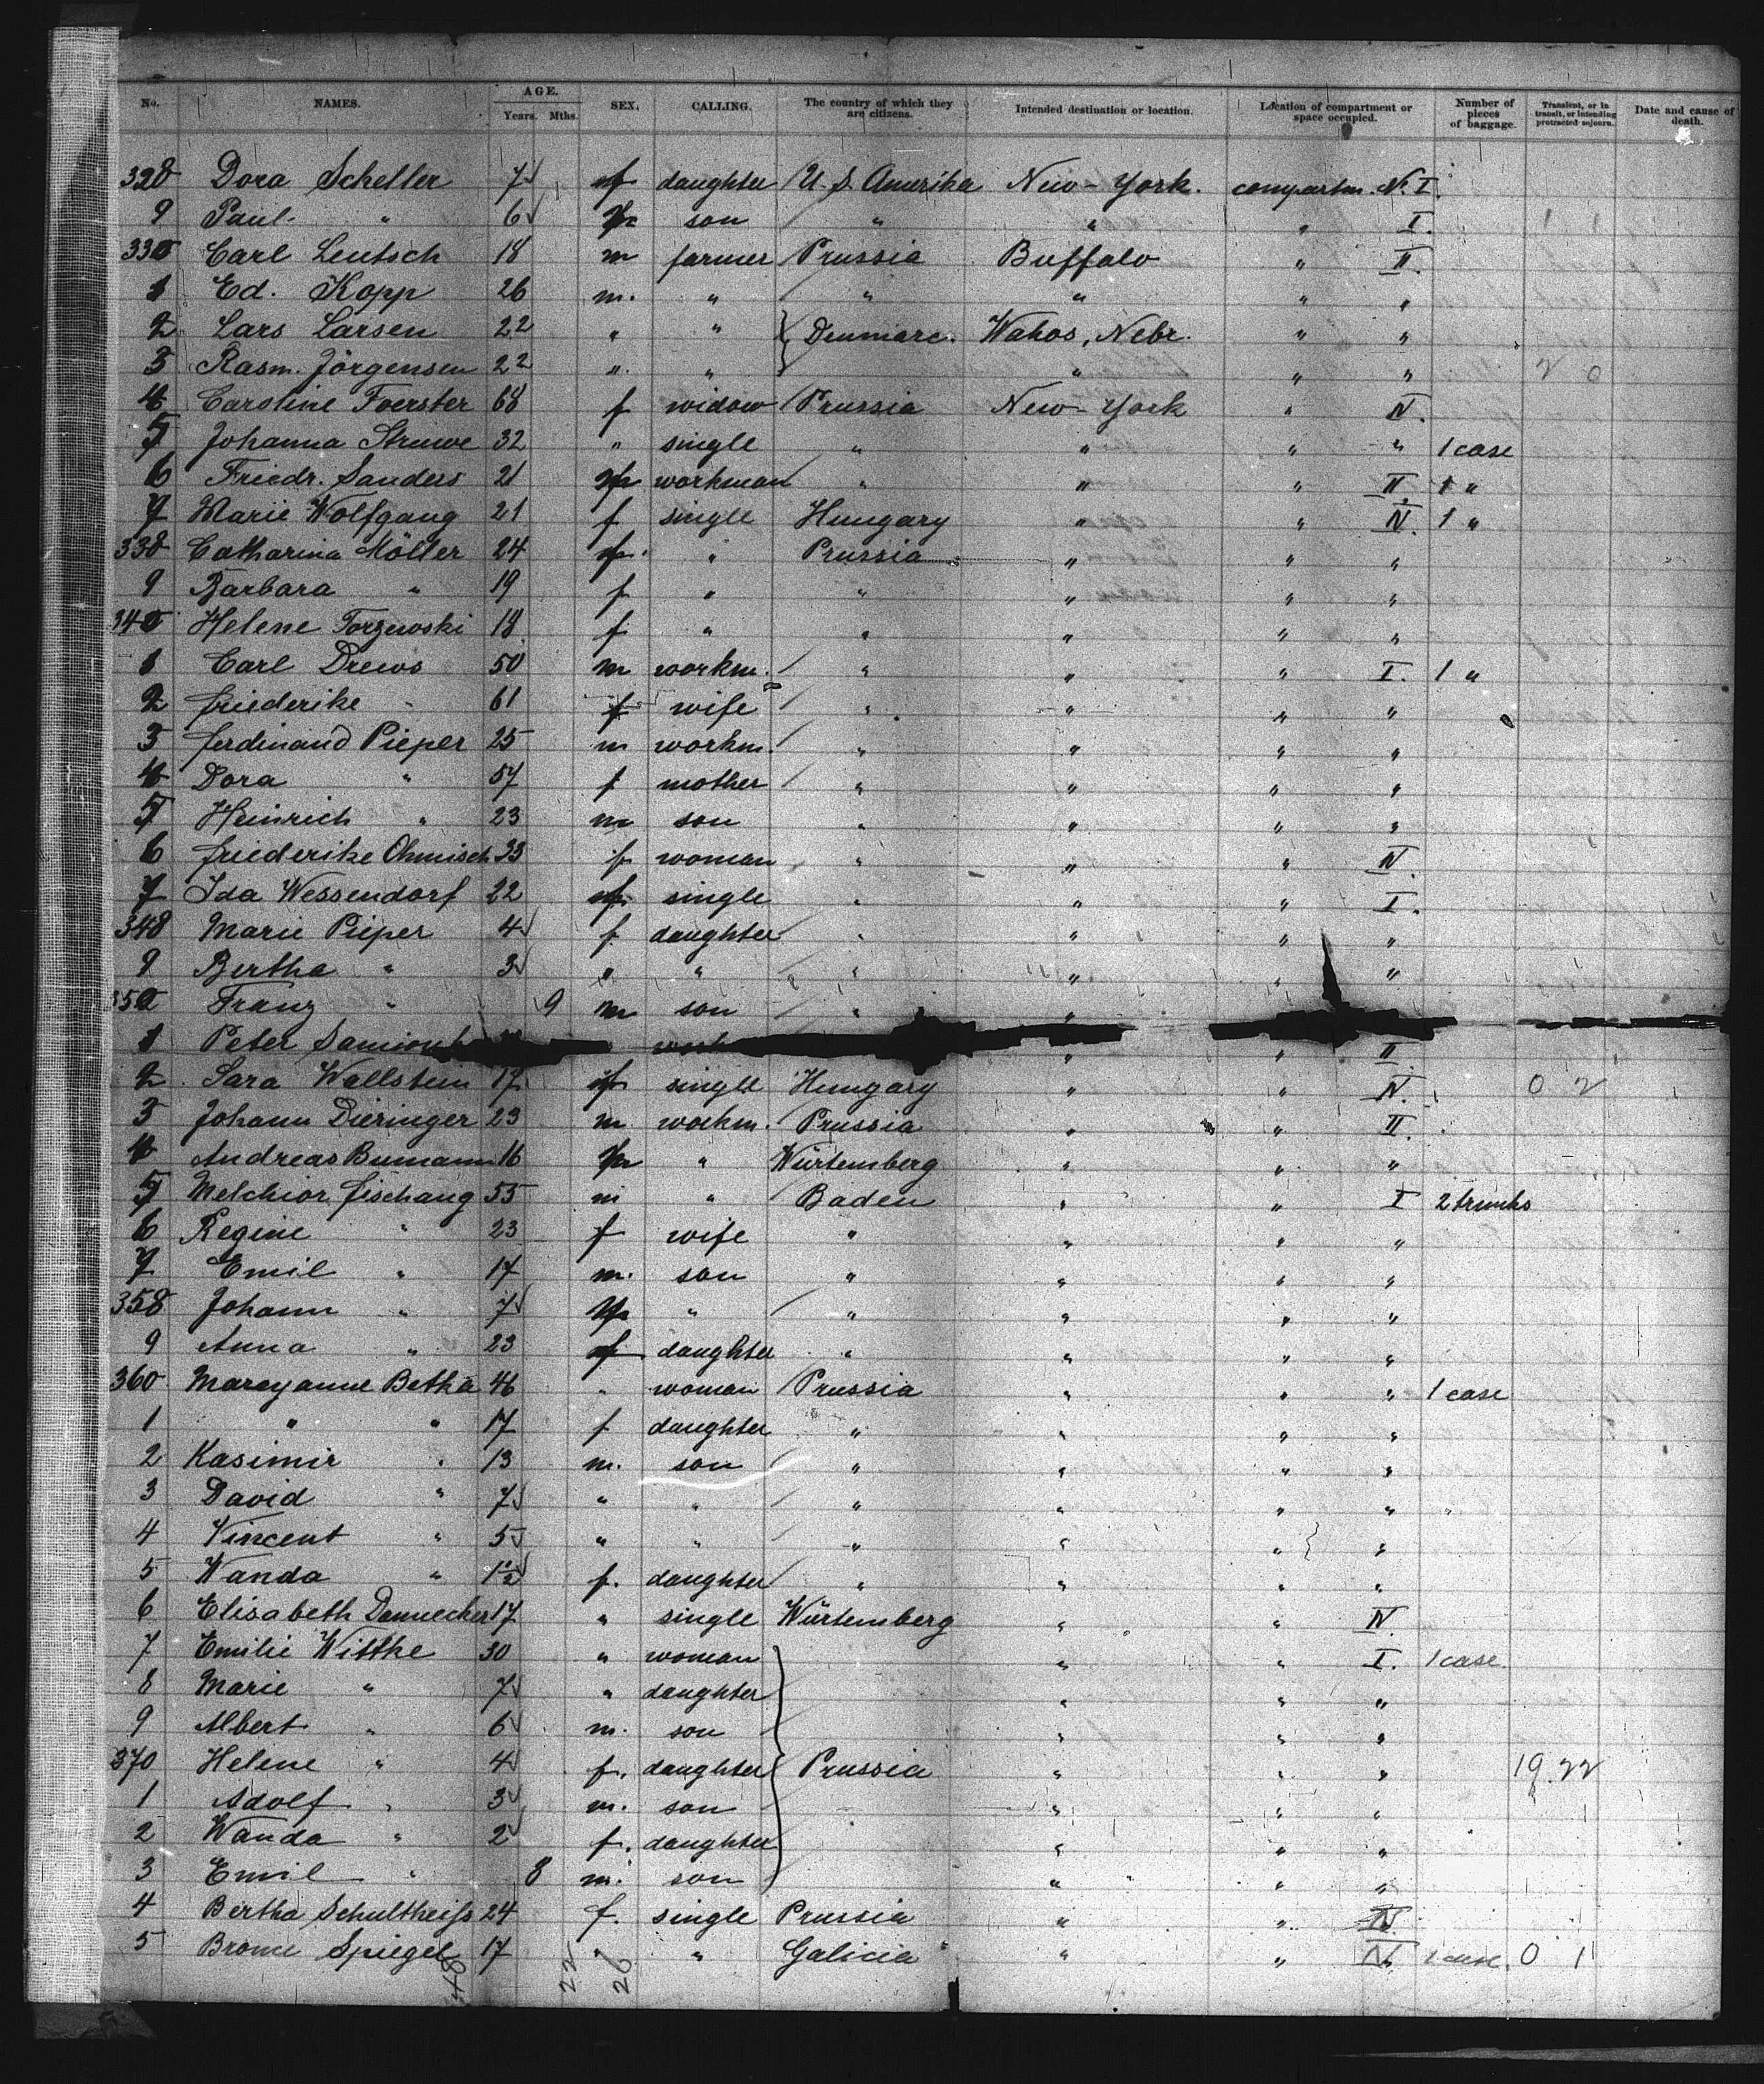 No. NAMES. AGE. Years. Mths. SEX. CALLING. The country of which they are citizens. Intended destination or location. Location of compartment or space occupied. Number of pieces of baggage. Transient, or in transit, or intending protracted sojourn. Date and cause of death.
328 Dora Scheller 7 f daughter U. S. Amerika New-York. compartm. No. I.
9 Paul " 6 m son " " " I.
330 Carl Leutsch 18 m farmer Prussia Buffalo " II.
1 Ed. Kopp 26 m. " " " " "
2 Lars Larsen 22 " " Denmarc. Wahos, Nebr. " "
3 Rasm. Jörgensen 22 " " " " " 2 0
4 Caroline Foerster 68 f widow Prussia New-York " IV.
5 Johanna Struwe 32 " single " " " " 1 case
6 Friedr. Sanders 21 m workman " " " II 1 "
7 Marie Wolfgang 21 f single Hungary " " IV. 1 "
338 Catharina Möller 24 f. " Prussia " " "
9 Barbara " 19 f " " " " "
340 Helene Torzewski 18 f " " " " "
1 Carl Drews 50 m workm. " " " I. 1 "
2 friederike " 61 f wife " " " "
3 ferdinand Pieper 25 m workm. " " " "
4 Dora " 57 f mother " " " "
5 Heinrich " 23 m son " " " "
6 friederike Ohmisch 33 f woman " " " IV.
7 Ida Wessendorf 22 f. single " " " I.
348 Marie Pieper 4 f daughter " " " "
9 Bertha " 3 " " " " " "
350 Franz " 9 m son " "
1 Peter " " II
2 Sara Wallstein 17 f single Hungary " " IV. 0 2
3 Johann Dieringer 23 m. workm. Prussia " " II.
4 Andreas Bumann 16 m " Würtemberg " " "
5 Melchior fischang 55 m " Baden " " I 2 trunks
6 Regine " 23 f wife " " " "
7 Emil " 17 m. son " " " "
358 Johann " 7 m " " " " "
9 Anna " 23 f daughter " " " "
360 Mareyanne Betka 46 " woman Prussia " " " 1 case
1 " " 17 f daughter " " " "
2 Kasimir " 13 m. son " " " "
3 David " 7 " " " " " "
4 Vincent " 5 " " " " " "
5 Wanda " 1 1/2 f. daughter " " " "
6 Elisabeth Dannecker 17 " single Würtemberg " " IV.
7 Emilie Wittke 30 " woman " " I. 1 case.
8 Marie " 7 " daughter " " "
9 Albert " 6 m. son " " "
370 Helene " 4 f. daughter Prussia " " " 19 22
1 Adolf " 3 m. son " " "
2 Wanda " 2 f. daughter " " "
3 Emil " 8 m. son " " "
4 Bertha Schultheiss 24 f. single Prussia " " IV.
5 Brome Spiegel 17 " " Galicia " " IV. case. 0 1
48 22 26